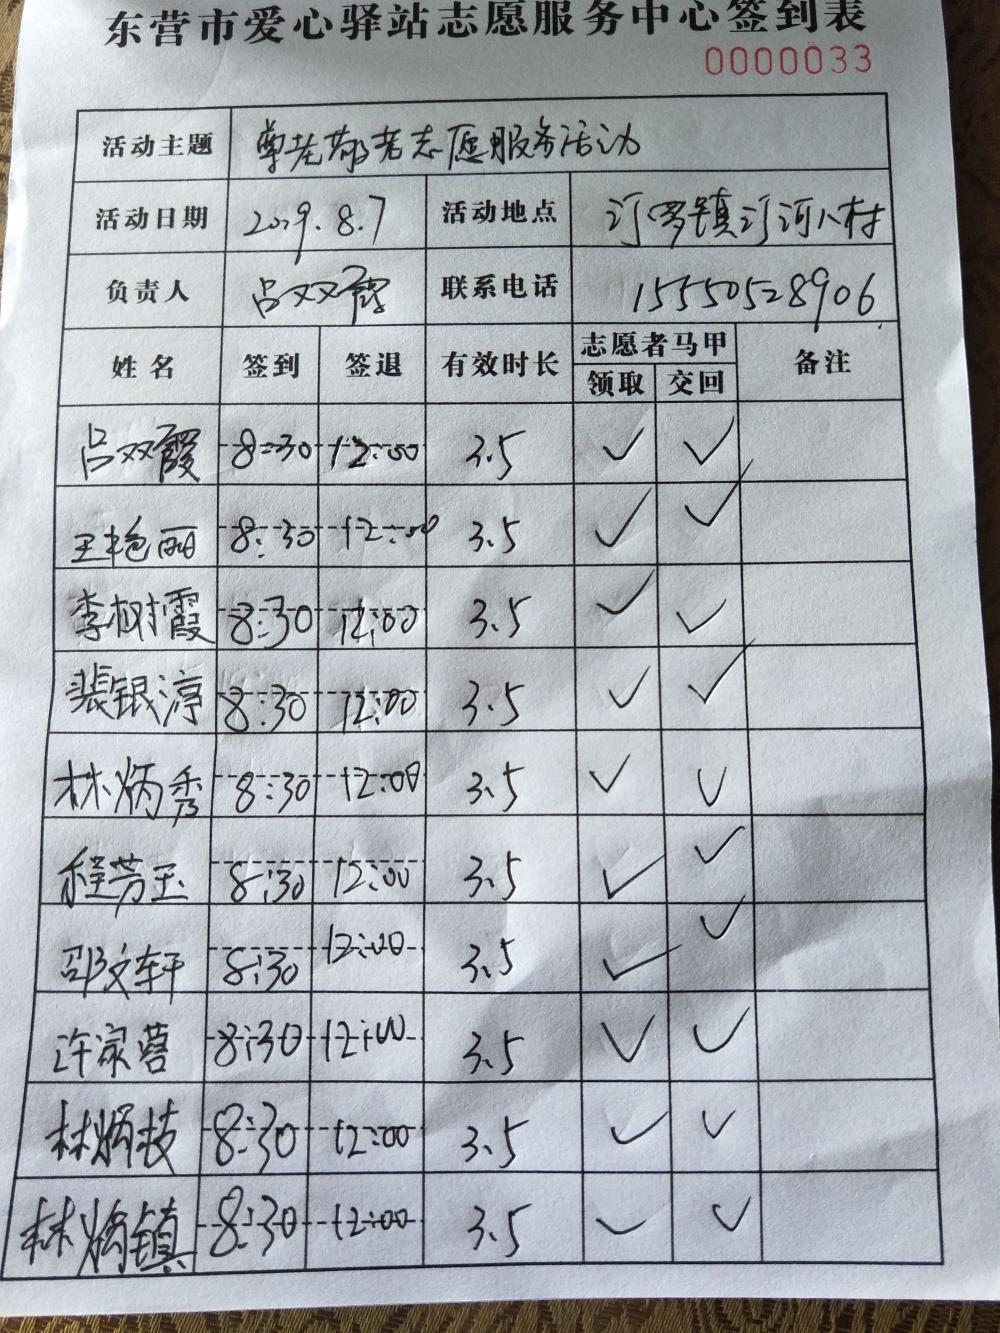 东营市爱心驿站志愿服务中心签到表
0000033
活动主题 尊老敬老志愿服务活动
活动日期 2019.8.7 活动地点 汀罗镇汀河八村
负责人 吕双霞 联系电话 15550528906
姓名 签到 签退 有效时长 志愿者马甲 备注
领取 交回
吕双霞 8:30 12:00 3.5 ✓ ✓
王艳丽 8:30 12:00 3.5 ✓ ✓
李树霞 8:30 12:00 3.5 ✓ ✓
裴银淳 8:30 12:00 3.5 ✓ ✓
林炳秀 8:30 12:00 3.5 ✓ ✓
程芳玉 8:30 12:00 3.5 ✓ ✓
邵文轩 8:30 12:00 3.5 ✓ ✓
许渌蓉 8:30 12:00 3.5 ✓ ✓
林炳枝 8:30 12:00 3.5 ✓ ✓
林炳镇 8:30 12:00 3.5 ✓ ✓